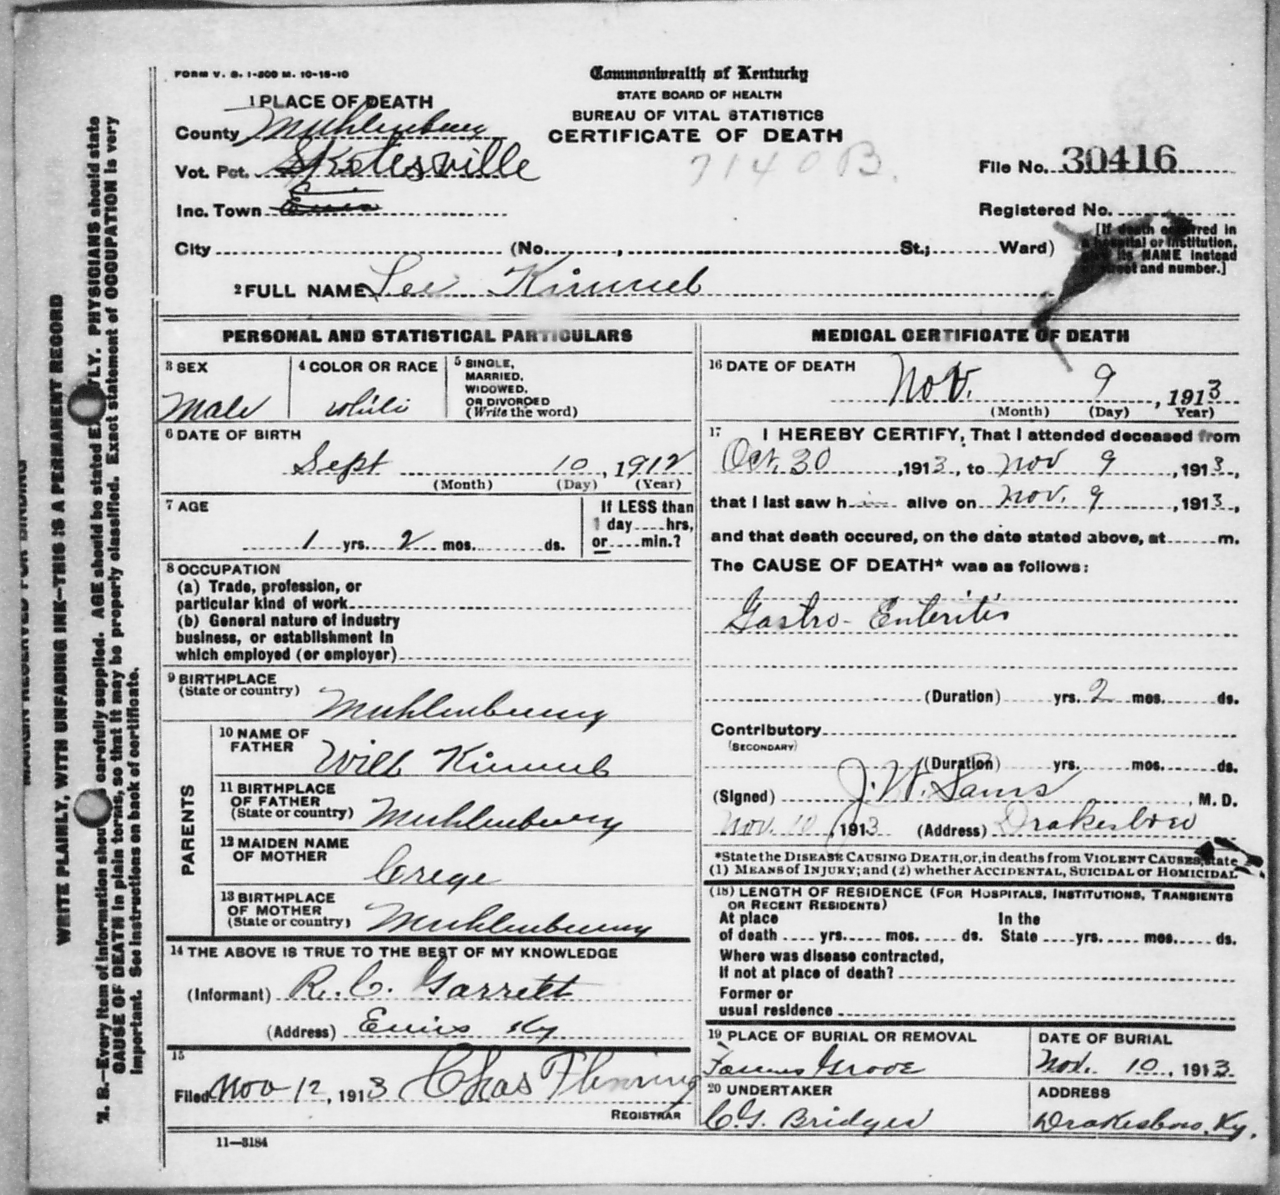 FORM V. S. 1-300 M. 10-15-10
Commonwealth of Kentucky
STATE BOARD OF HEALTH
BUREAU OF VITAL STATISTICS
CERTIFICATE OF DEATH
1 PLACE OF DEATH
County Muhlenburg
Vot. Pct.
7140 B.
File No. 30416
Inc. Town Ennis
Registered No.
City (No. , St.; Ward)
[If death occurred in a hospital or institution, give its NAME instead of street and number.]
2 FULL NAME Lee Kimmel
PERSONAL AND STATISTICAL PARTICULARS
3 SEX
Male
4 COLOR OR RACE
White
5 SINGLE, MARRIED, WIDOWED, OR DIVORCED (Write the word)
6 DATE OF BIRTH
Sept 10, 1912
(Month) (Day) (Year)
7 AGE
1 yrs. 2 mos. ds.
If LESS than 1 day hrs, or min.?
8 OCCUPATION
(a) Trade, profession, or
particular kind of work
(b) General nature of industry
business, or establishment in
which employed (or employer)
9 BIRTHPLACE
(State or country)
Muhlenburg
PARENTS
10 NAME OF FATHER
Will Kimmel
11 BIRTHPLACE OF FATHER
(State or country)
Muhlenburg
12 MAIDEN NAME OF MOTHER
13 BIRTHPLACE OF MOTHER
(State or country)
Muhlenburg
14 THE ABOVE IS TRUE TO THE BEST OF MY KNOWLEDGE
(Informant) R. C. Garrett
(Address) Ennis Ky
15
Filed Nov 12, 1913 Chas Fleming
REGISTRAR
11—3184
MEDICAL CERTIFICATE OF DEATH
16 DATE OF DEATH
Nov. 9, 1913
(Month) (Day) Year)
17 I HEREBY CERTIFY, That I attended deceased from
Oct, 30, 1913, to Nov 9, 1913,
that I last saw him alive on Nov. 9, 1913,
and that death occured, on the date stated above, at m.
The CAUSE OF DEATH* was as follows:
Gastro-Enteritis
(Duration) yrs. 2 mos. ds.
Contributory
(SECONDARY)
(Duration) yrs. mos. ds.
(Signed) J. W. Sams, M. D.
Nov. 10, 1913 (Address) Drakesboro
*State the DISEASE CAUSING DEATH, or, in deaths from VIOLENT CAUSES, state
(1) MEANS of INJURY; and (2) whether ACCIDENTAL, SUICIDAL or HOMICIDAL
(18) LENGTH OF RESIDENCE (FOR HOSPITALS, INSTITUTIONS, TRANSIENTS
OR RECENT RESIDENTS)
At place of death yrs. mos. ds. In the State yrs. mos. ds.
Where was disease contracted,
if not at place of death?
Former or
usual residence
19 PLACE OF BURIAL OR REMOVAL
Grove
DATE OF BURIAL
Nov. 10, 1913
20 UNDERTAKER
C. G. Bridges
ADDRESS
Drakesboro, Ky.
MARGIN RESERVED FOR BINDING
WRITE PLAINLY, WITH UNFADING INK—THIS IS A PERMANENT RECORD
N. B.—Every item of information should carefully supplied. AGE should be stated EXACTLY. PHYSICIANS should state
CAUSE OF DEATH in plain terms, so that it may be properly classified. Exact statement of OCCUPATION is very
important. See instructions on back of certificate.